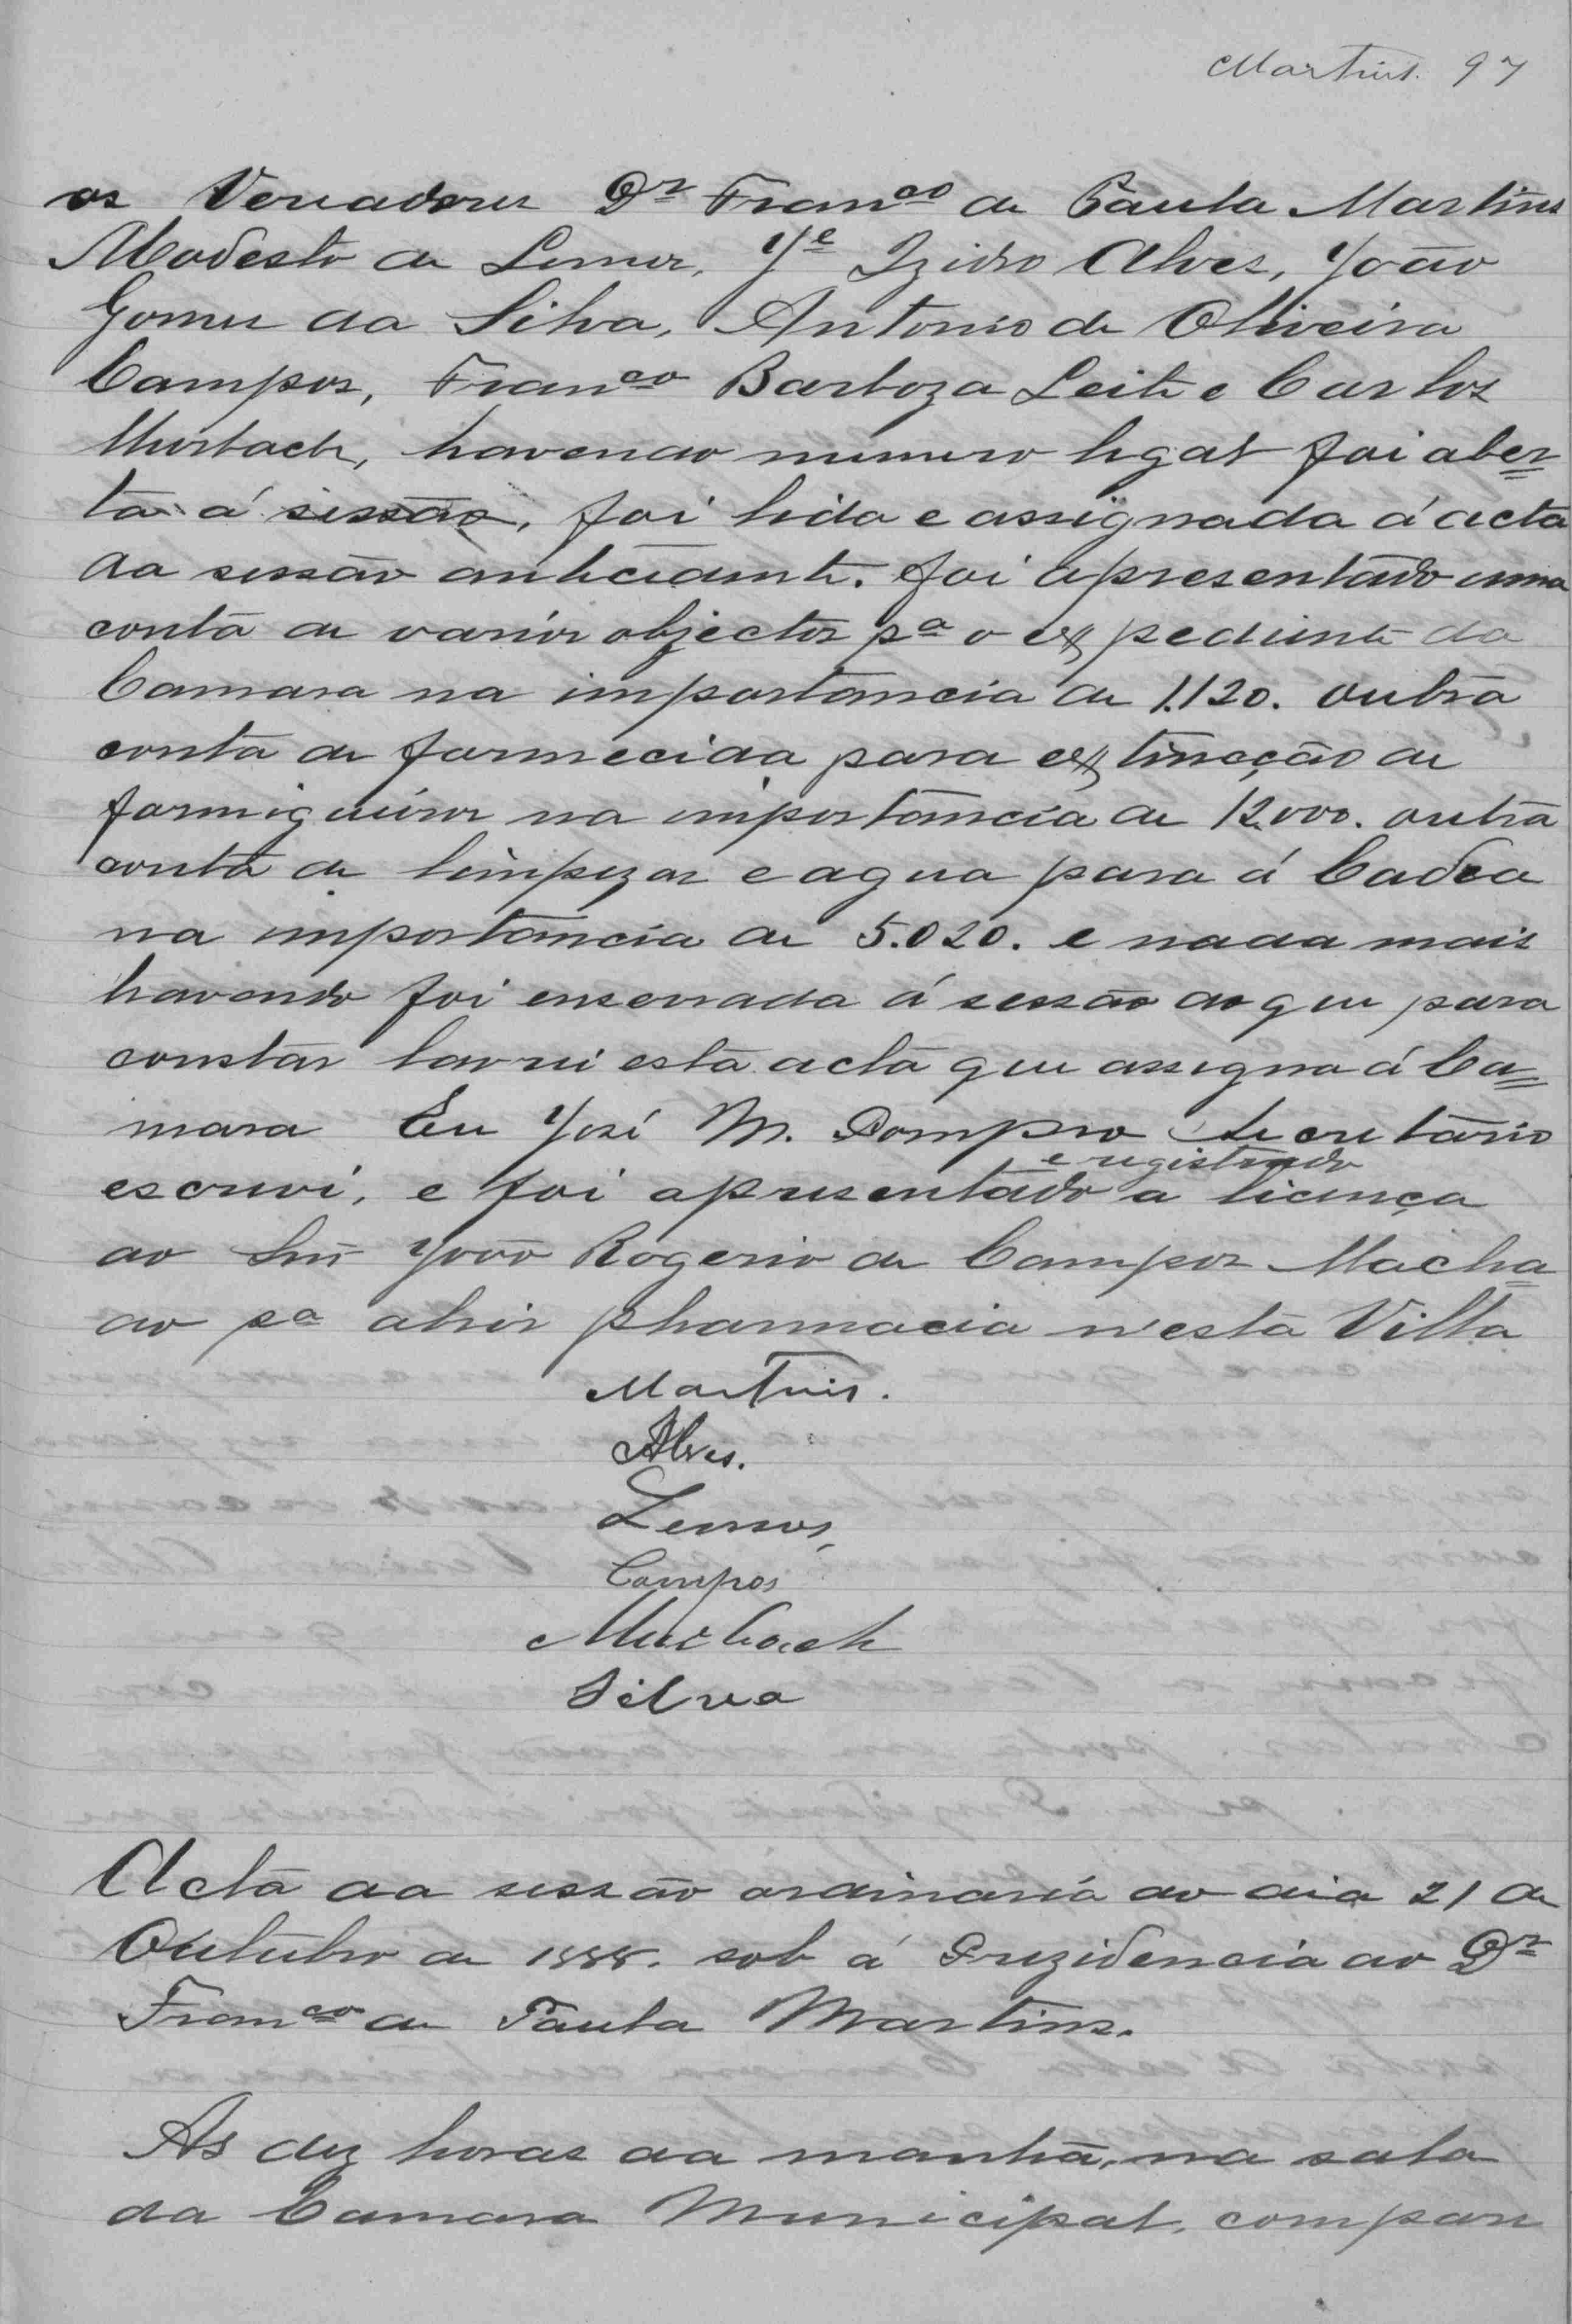 Martins. 97
os Vereadores Dr Franco de Paula Martins
Modesto de Lemos, Je Izidro Alves, João
Gomes da Silva, Antonio de Oliveira
Campos, Franco Barboza Leite e Carlos
Murbach, havendo numero legal foi aber=
ta á sessão, foi lida e assignada á acta
da sessão antecedente. foi apresentado uma
conta de varios objectos pa o expediente da
Camara na importancia de 1.120. outra
conta de formecida para extincção de
formigueiros na importancia de 12.000. outra
conta de limpezas e agua para á Cadea
na importancia de 5.020. e nada mais
havendo foi enserrada á sessão do que para
constar lavrei esta acta que assigna á Ca=
mara Eu José M. Pompeo Secretario
e registrado
escrevi, e foi apresentado a licença
do Snr João Rogerio de Campos Macha=
do pa abrir pharmacia n'esta Villa
Martins.
Alves.
Lemos,
Campos
Murbach
Silva
Acta da sessão ordinaria do dia 21 de
Outubro de 1888. sob á Prezidencia do Dr
Franco de Paula Martins.
As dez horas da manhã, na sala
da Camara Municipal, compare